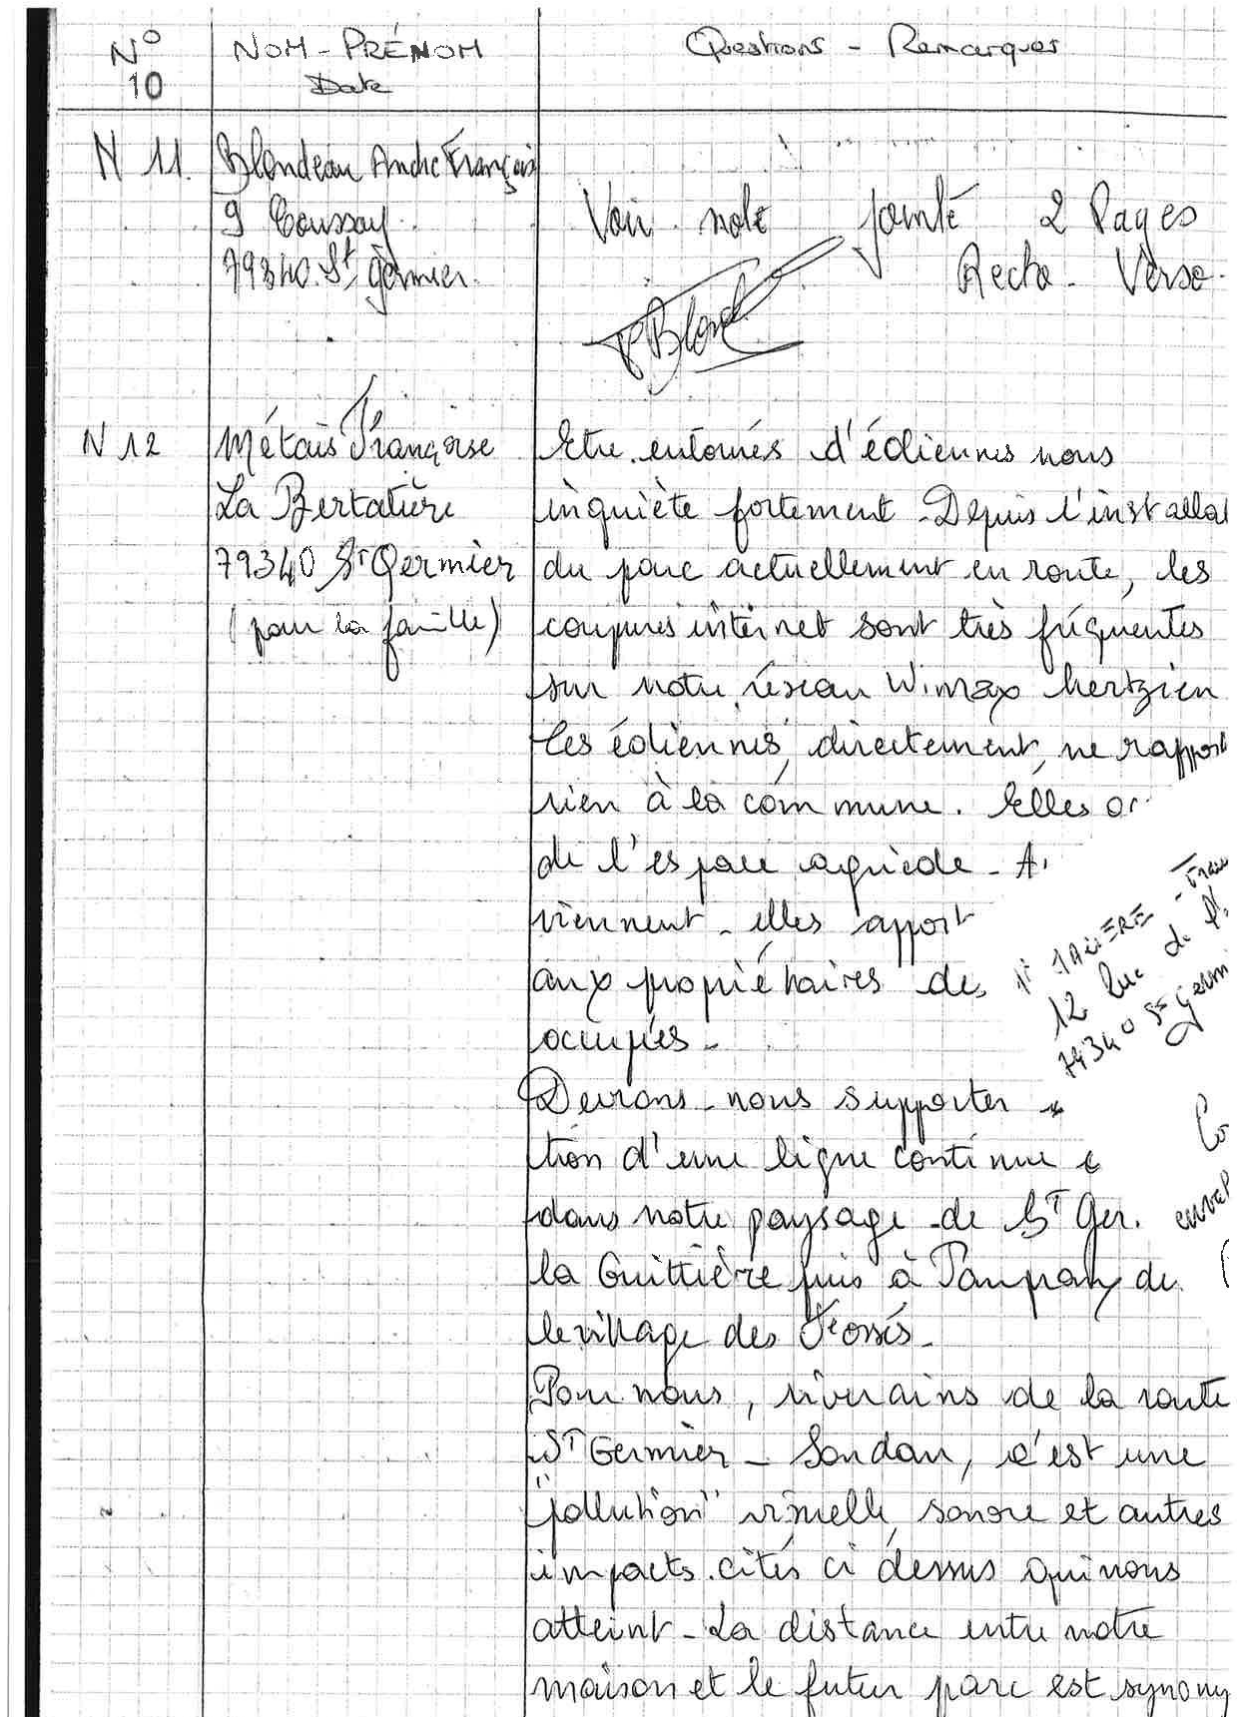 N° NOM - PRÉNOM Questions - Remarques
10 Date
N 11. Blondeau André François
9 Coussay. Voir note jointe 2 Pages
79340. St germier. Recto - Verso.
Blond
N 12 Métais Françoise Etre entourés d'éoliennes nous
La Bertatière inquiète fortement. Depuis l'installat
79340 St Germier du parc actuellement en route, les
(pour la famille) coupures internet sont très fréquentes
sur notre réseau Wimax hertzien
Les éoliennes, directement, ne rapport
rien à la commune. Elles
de l'espace agricole - A
viennent - elles apport
aux propriétaires des
occupés -
Devrons-nous supporter
tion d'une ligne continue
dans notre paysage de St Ger.
la Guittière puis à Pamproux de
le village des Fossés -
Pour nous, riverains de la route
St Germier - Soudan, c'est une
"pollution" visuelle, sonore et autres
impacts cités ci dessus qui nous
atteint - La distance entre notre
maison et le futur parc est synony
12 Rue de
79340 St germ